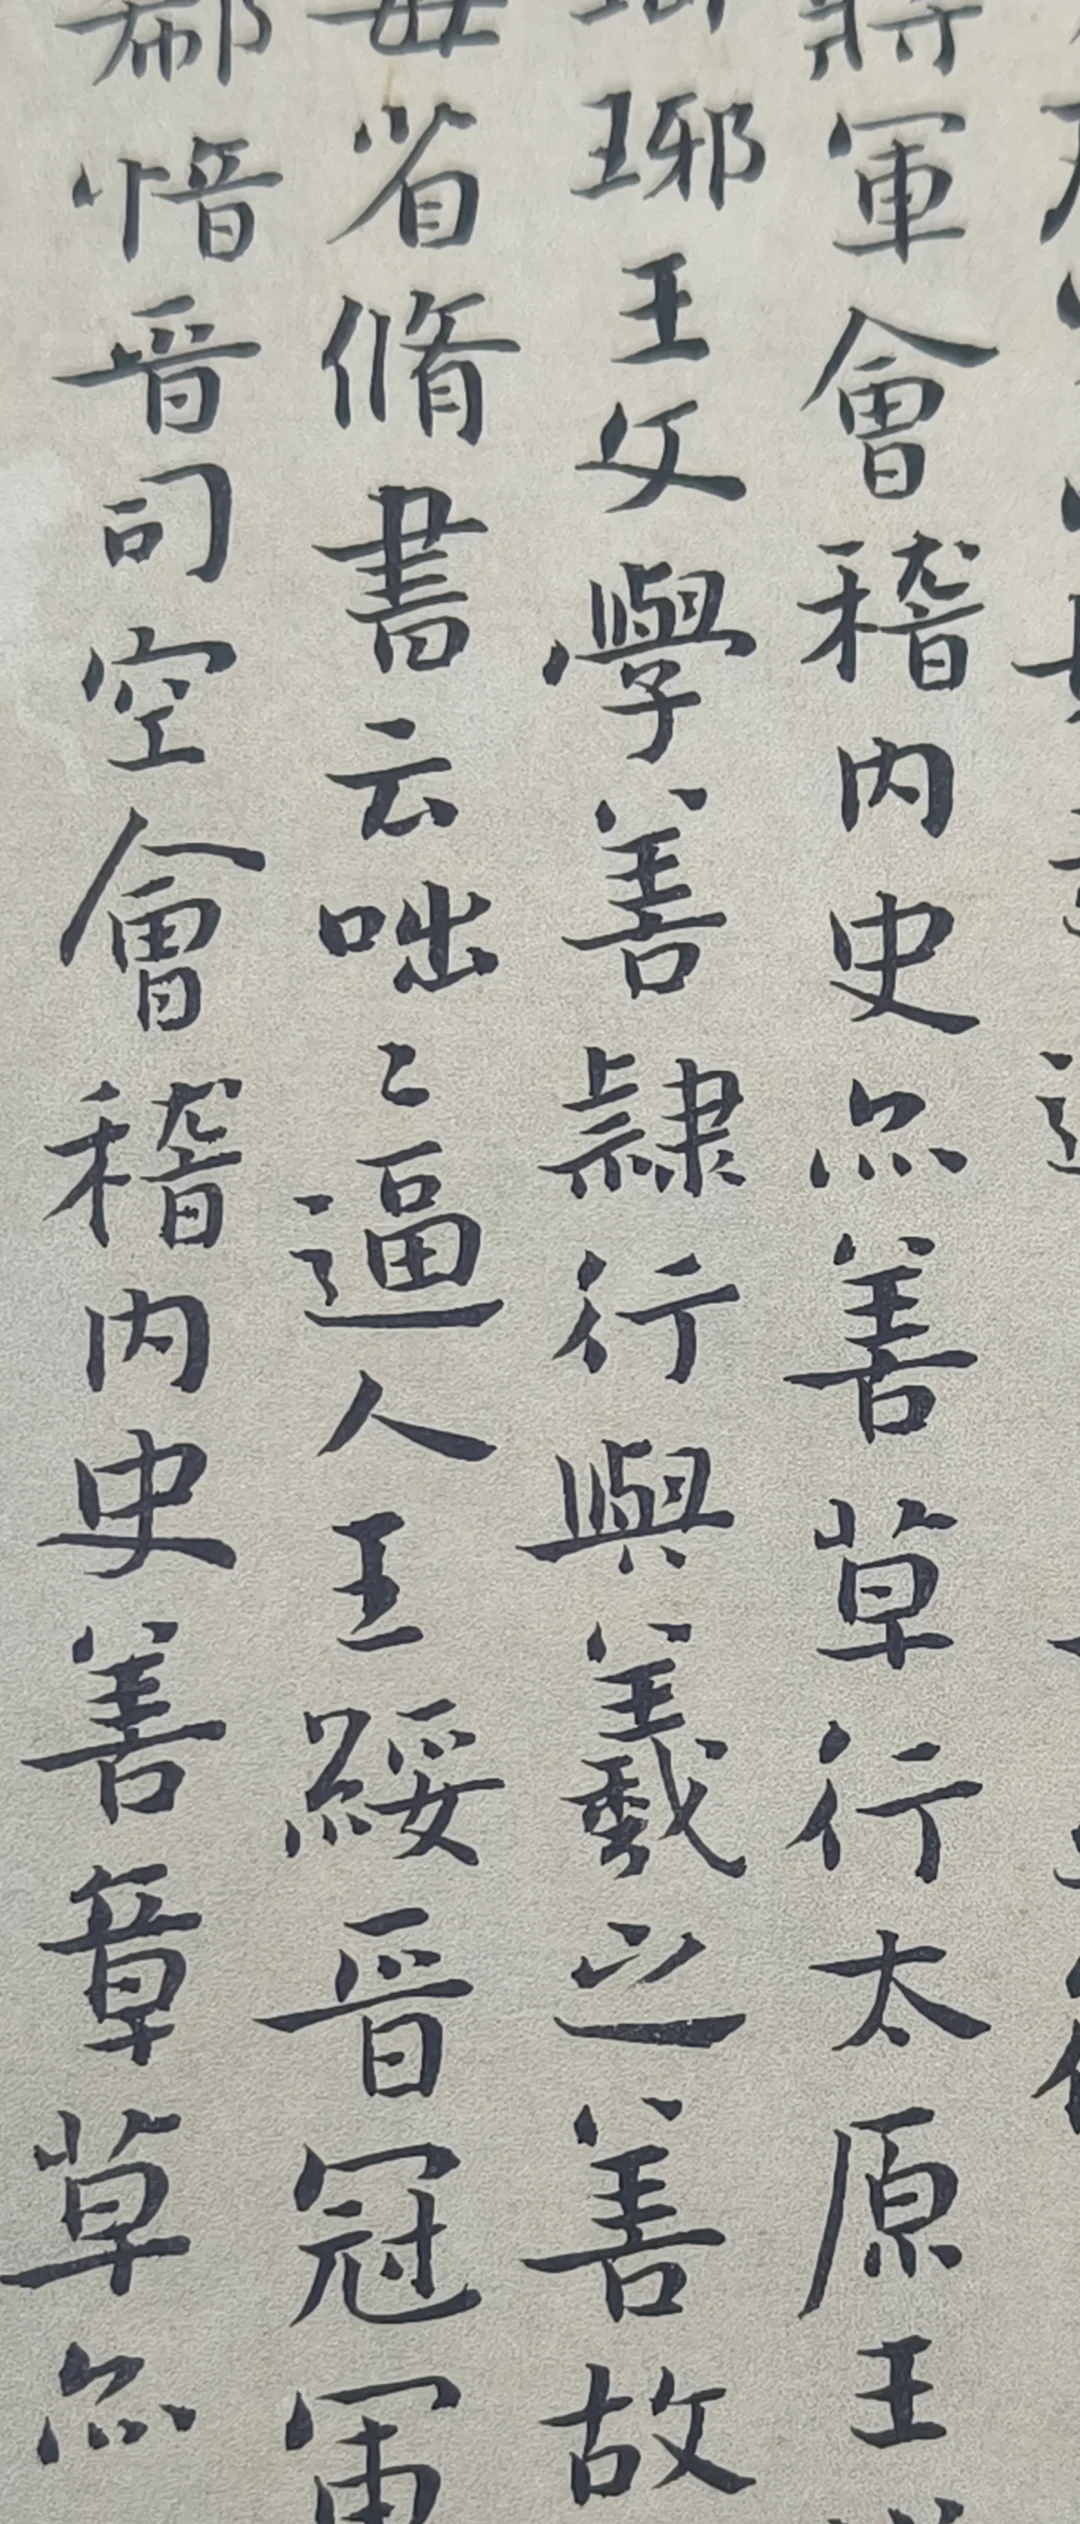 將軍會稽内史亦善草行太原王
琅琊王文學善隸行與羲之善故
每省脩書云咄〻逼人王綏晉冠軍
郗愔晉司空會稽内史善章草亦